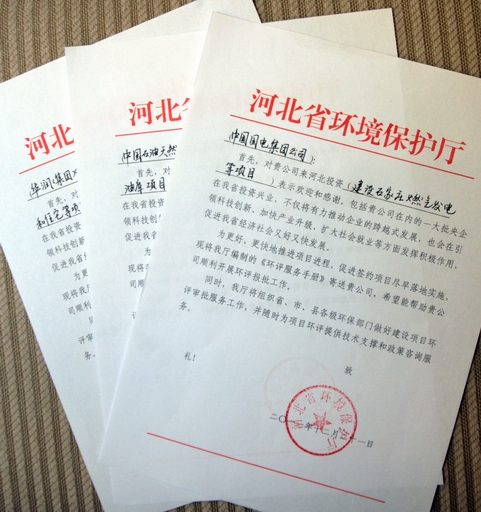 河北省环境保护厅
中国国电集团公司：
首先，对贵公司来河北投资（建设石家庄燃气发电
等项目）表示欢迎和感谢。包括贵公司在内的一大批央企
在我省投资兴业，不仅将有力推动企业的跨越式发展，也会在引
领科技创新、加快产业升级、扩大社会就业等方面发挥积极作用，
促进我省经济社会又好又快发展。
为更好、更快地推进项目进程，促进签约项目尽早落地实施，
现将我厅编制的《环评服务手册》寄送贵公司，希望能帮助贵公
司顺利开展环评报批工作。
同时，我厅将组织省、市、县各级环保部门做好建设项目环
评审批服务工作，并随时为项目环评提供技术支撑和政策咨询服
务。
致
礼！
河北省环境保护厅
二〇一二年十二月三十一日
河北省
中国石油天然
首先，对
油库项目
在我省投资
领科技创新
促进我省
为更
现将我厅
司顺利
同
评审
务。
河北
华润（集团）
首先，对
和住宅等项
在我省投
领科技
促进我
为
现将
司顺
评
务